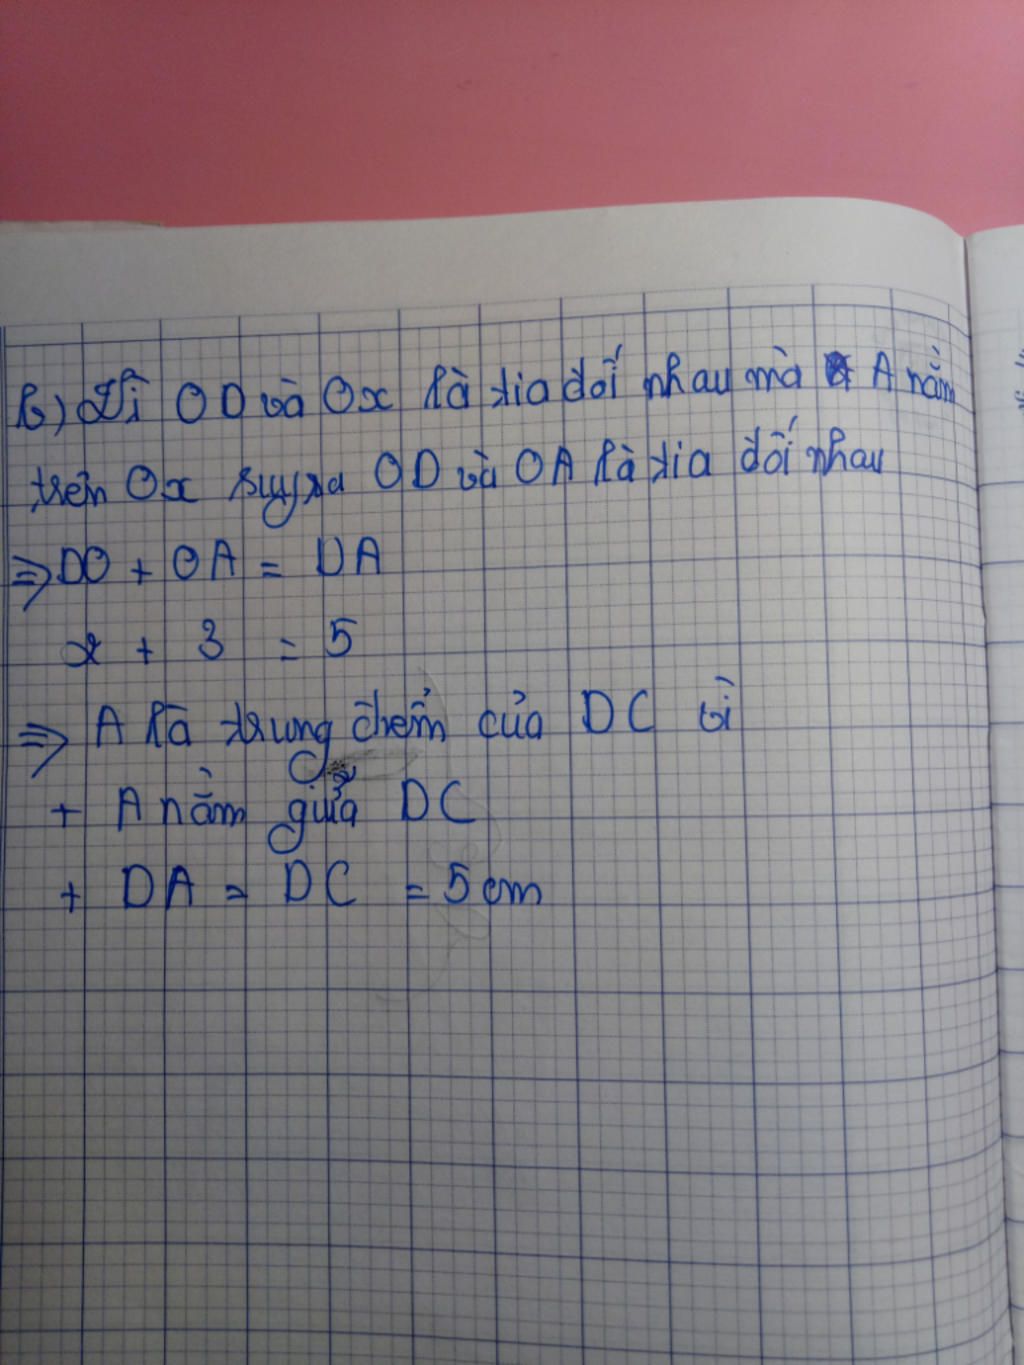 b) Vì OD và Ox là tia đối nhau mà A nằm
trên Ox suy ra OD và OA là tia đối nhau
=> DO + OA = DA
2 + 3 = 5
=> A là trung điểm của DC vì
+ A nằm giữa DC
+ DA = DC = 5cm